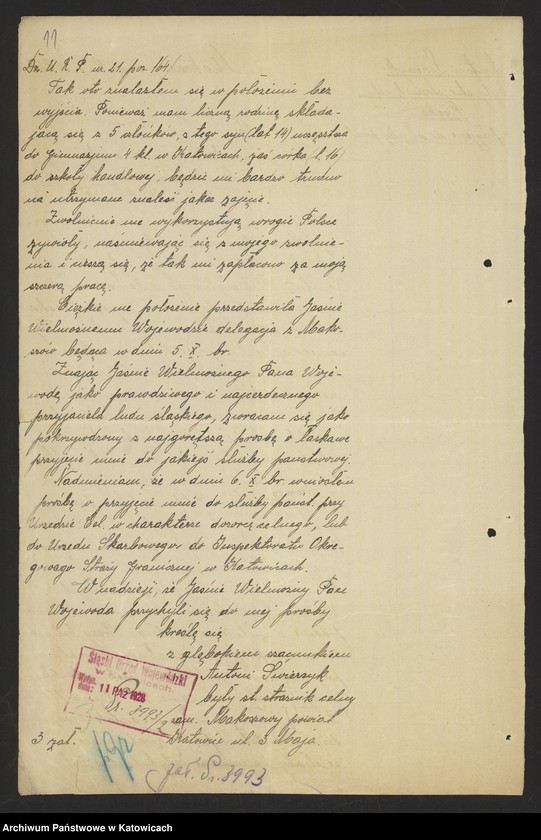 11
Dz. U. R. P. nr. 21. poz. 164.
Tak oto znalazłem się w położeniu bez
wyjścia. Ponieważ mam liczną rodzinę składa-
jącą się z 5 członków, z tego syn (lat 14) uczęszcza
do Gimnazjum 4 kl. w Katowicach, zaś córka (l. 16)
do szkoły handlowej, będzie mi bardzo trudno
na utrzymanie znaleść jakoś zajęcie.
Zwolnienie me wykorzystują wrogie Polsce
żywioły, naśmiewając się z mojego zwolnie-
nia i cieszą się, że tak mi zapłacono za moją
szczerą pracę.
Ciężkie me położenie przedstawiła Jaśnie
Wielmożnemu Wojewodzie delegacja z Mako-
szów będąca w dniu 5. X. br.
Znając Jaśnie Wielmożnego Pana Woje-
wodę jako prawdziwego i najserdecznego
przyjaciela ludu śląskiego, zwracam się jako
pokrzywdzony z najgorętszą prosbę o łaskawe
przyjęcie mnie do jakiejś służby państwowej.
Nadmieniam, że w dniu 6. X br. wniosłem
prośbę o przyjęcie mnie do służby państ. przy
Urzędzie Cel. w charakterze dozorcę celnego, lub
do Urzędu Skarbowego do Inspektoratu Okrę-
gowego Straży Granicznej w Katowicach.
W nadzieji, że Jaśnie Wielmożny Pan
Wojewoda przychyli się do mej prosby
kreślę się
z głębokiem szacunkiem
Antoni Świerszyk
były st. strażnik celny
zam. Makoszowy powiat
Katowice ul. 3 Maja
3 zał.
Śląski Urząd Wojewódzki
w Katowicach.
Wpłyn.
dnia: 11 PAŹ 1928
Nr. 8993/
zał. Nr. 8993
Archiwum Państwowe w Katowicach